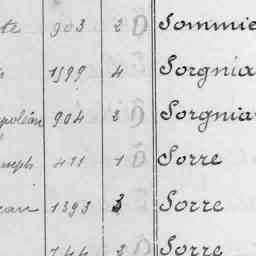 te 903 2 D Sommie
1599 4 Sorgnia
apoléon 904 2 D Sorgnia
oseph 411 1 D Sorre
ean 1393 3 Sorre
744 2 D Sorre